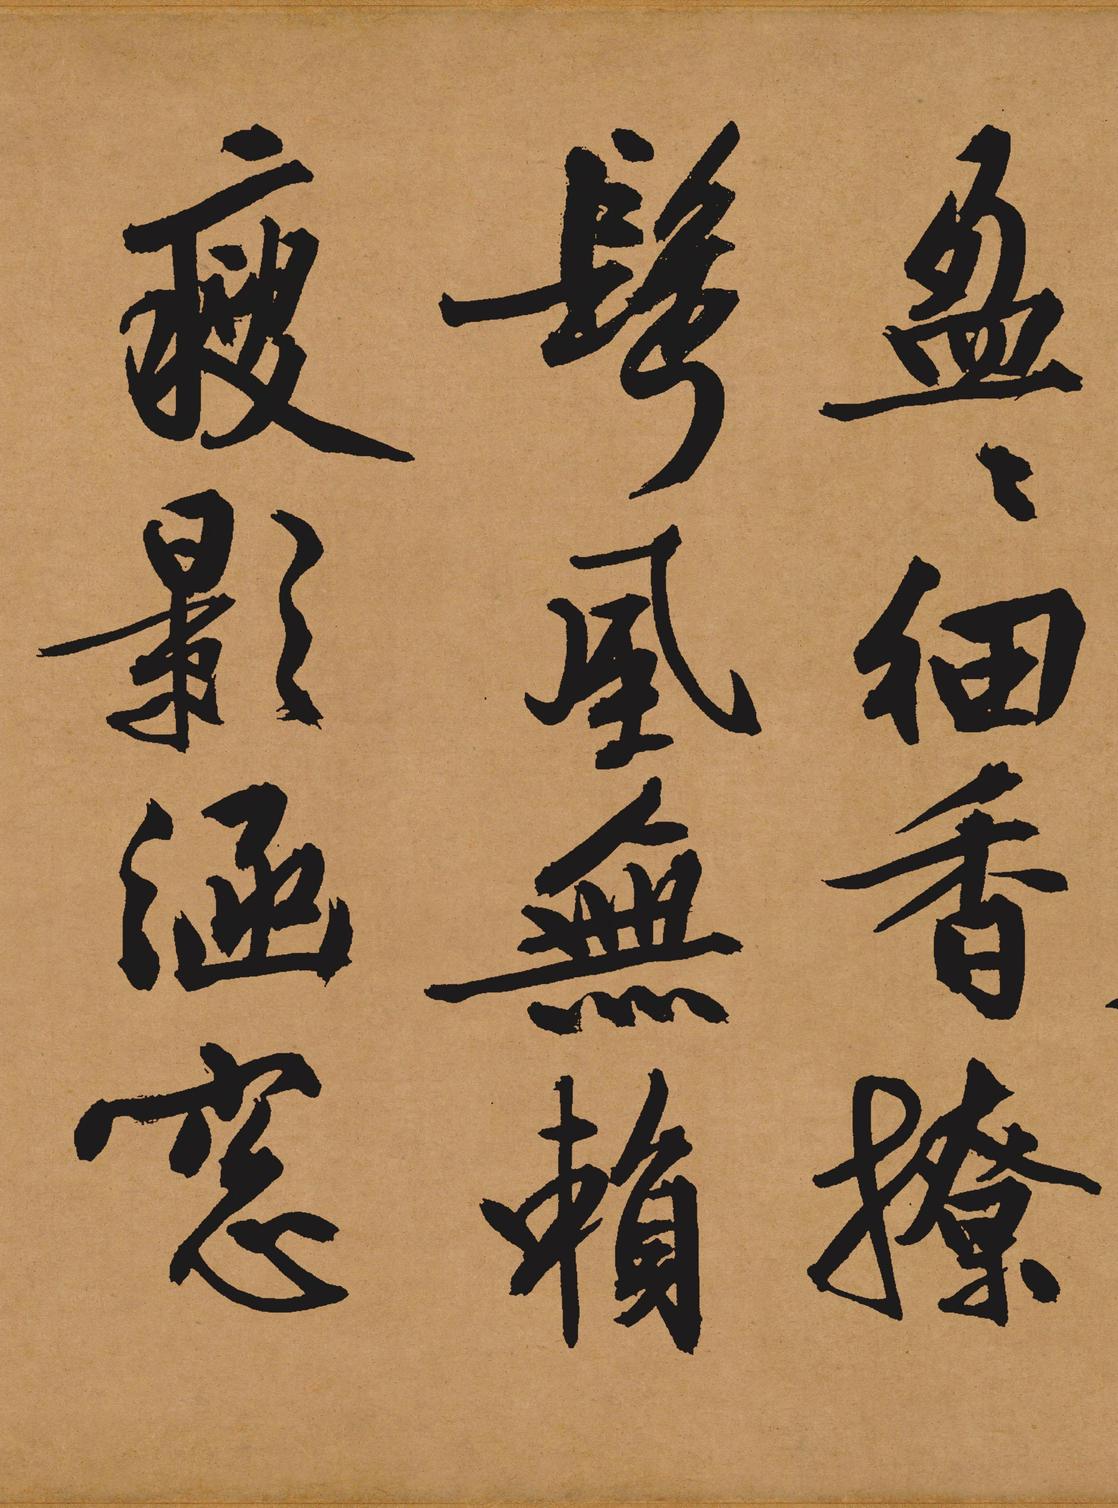 盈〻細香撩
鬢風無賴
瘦影涵窓